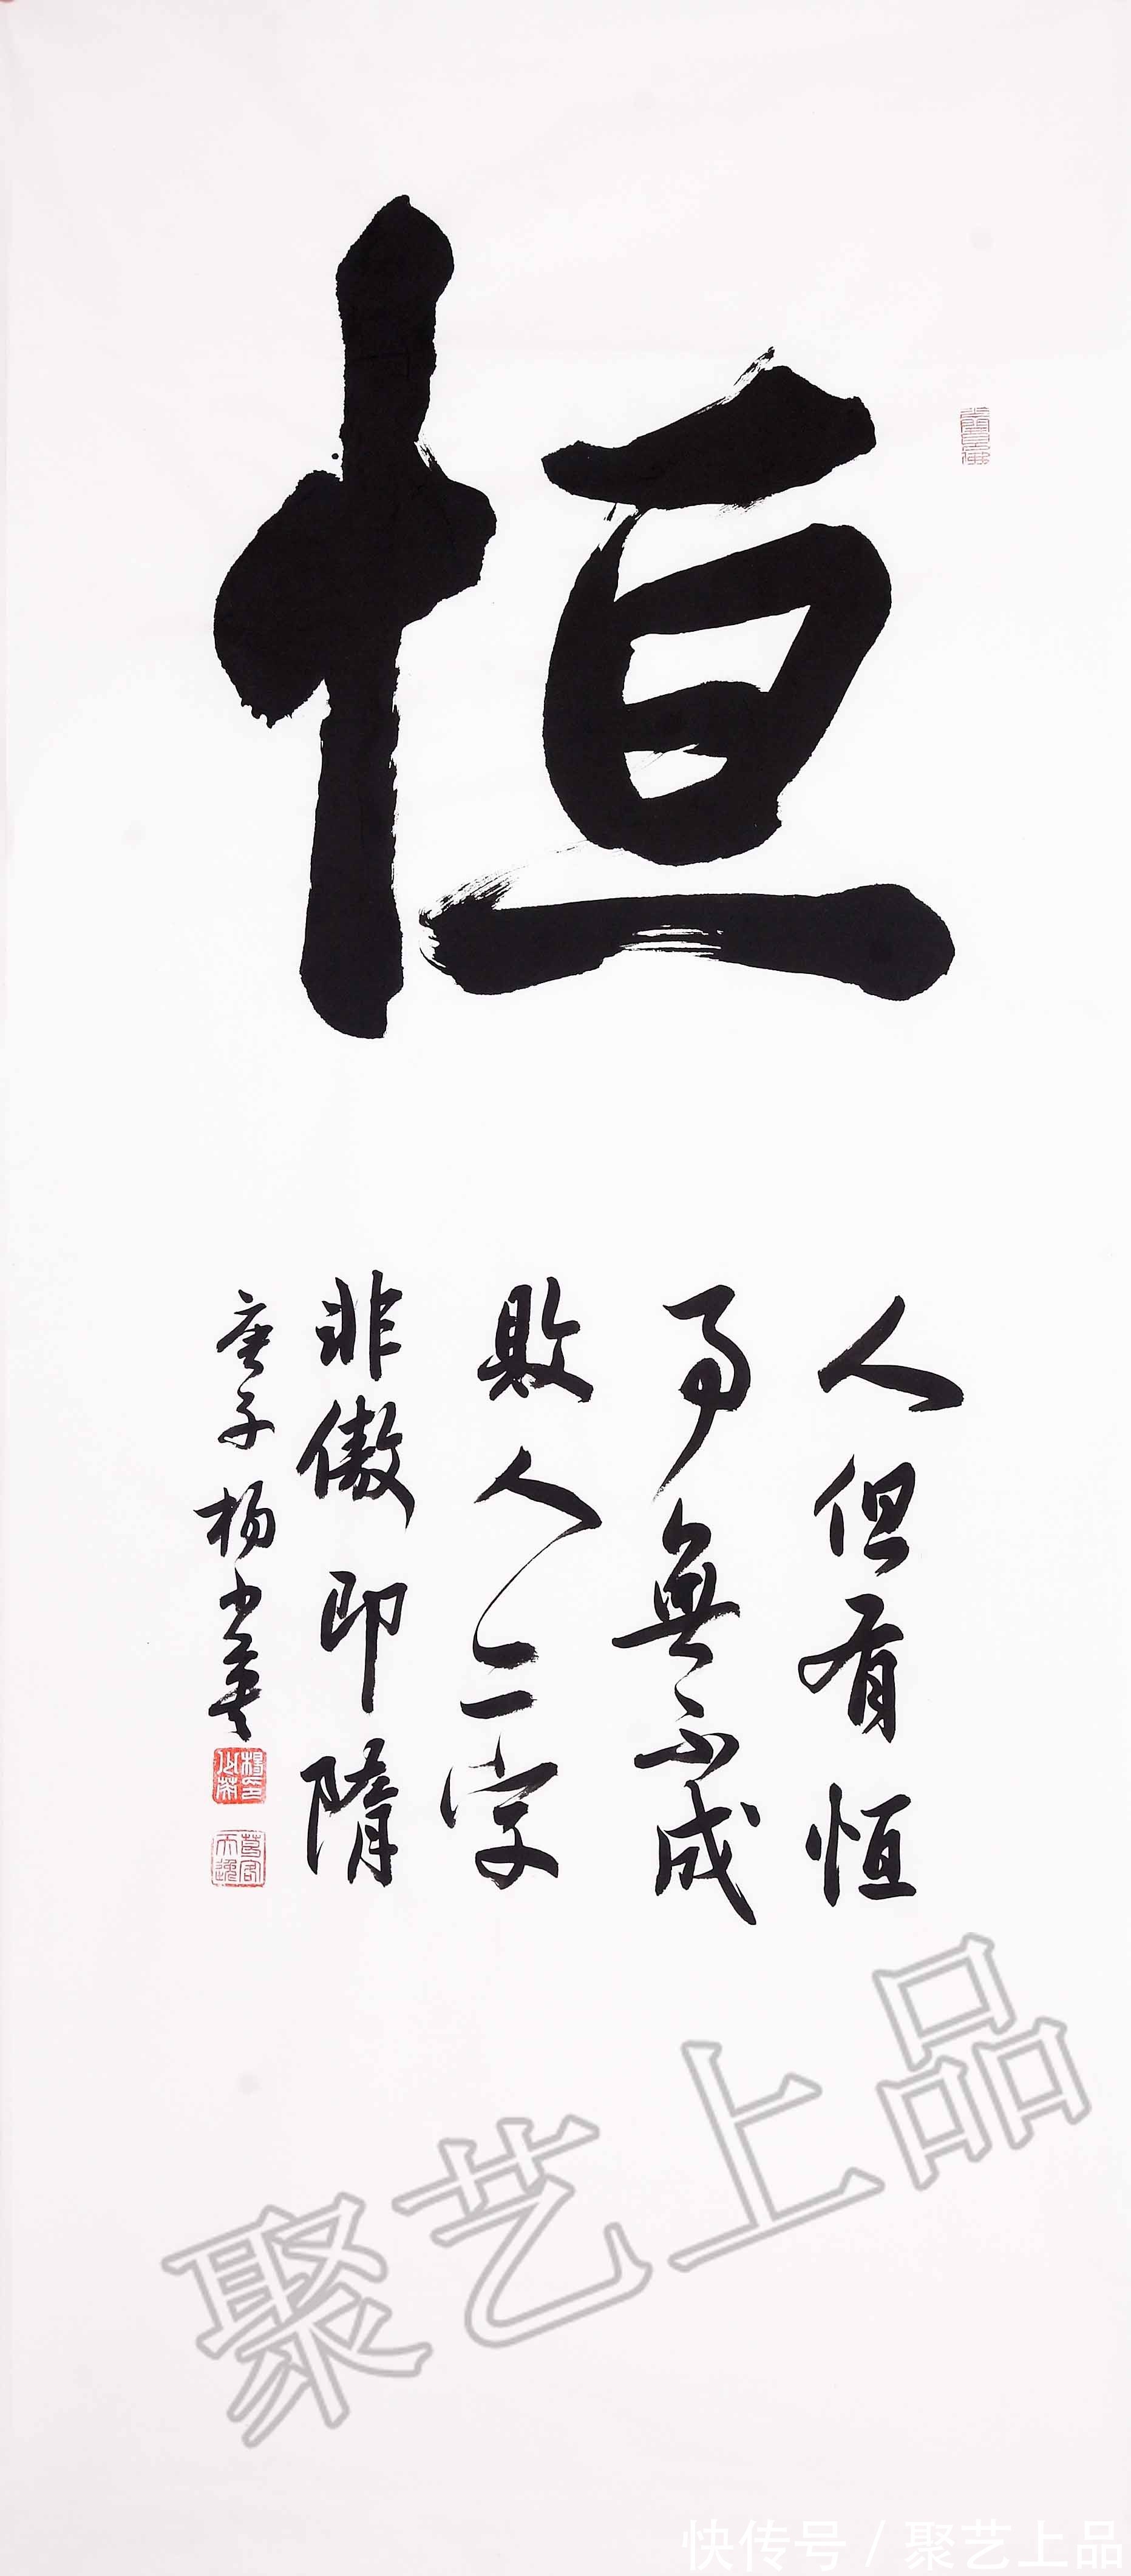 恒
人但有恒
事無不成
敗人二字
非傲即隋
庚子杨少英
聚艺上品
快传号 / 聚艺上品